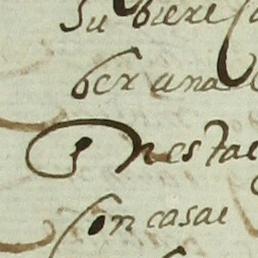 Su biere
ber una
nestae
son casae